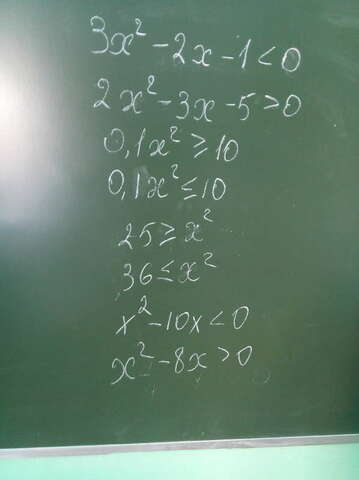 3x² - 2x - 1 < 0
2x² - 3x - 5 > 0
0,1x² ≥ 10
0,1x² ≤ 10
25 ≥ x²
36 ≤ x²
x² - 10x < 0
x² - 8x > 0